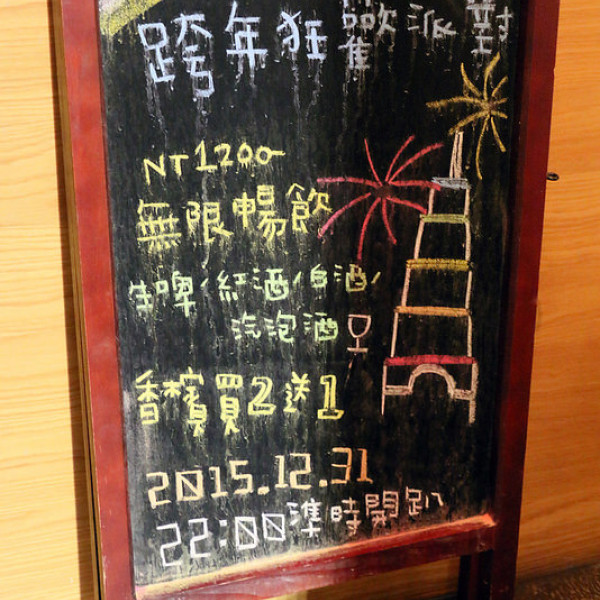 跨年狂歡派對
NT1200
無限暢飲
生啤/紅酒/白酒/
汽泡酒
香檳買2送1
2015.12.31
22:00準時開趴